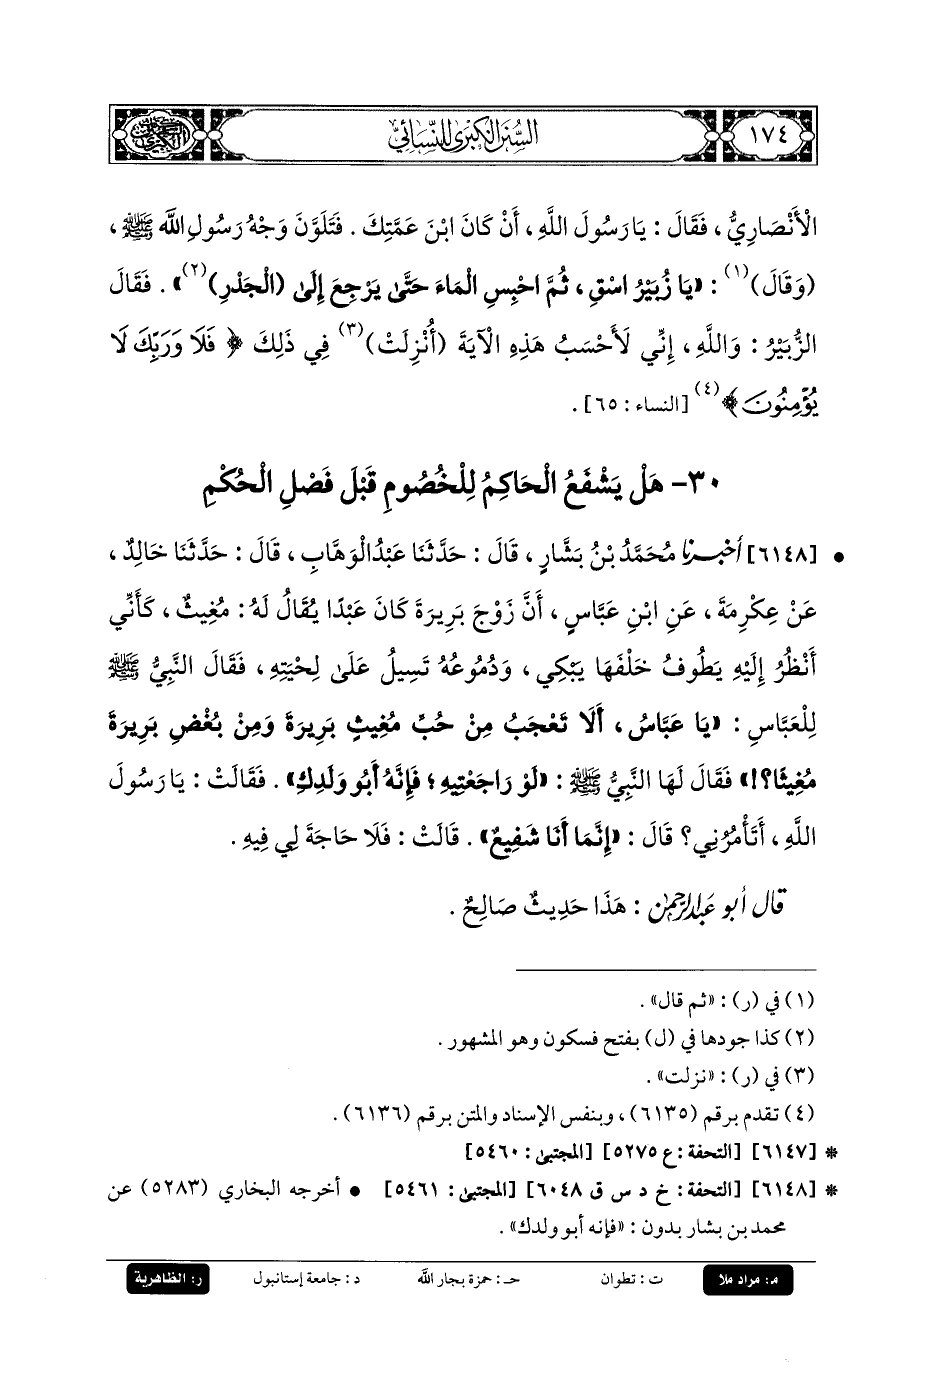 ١٧٤
السُّنَنُ الكِبْرَى لِلنَّسَائِيِّ
الْأَنْصَارِيُّ ، فَقَالَ : يَا رَسُولَ اللَّهِ ، أَنْ كَانَ ابْنَ عَمَّتِكَ . فَتَلَوَّنَ وَجْهُ رَسُولِ اللَّه ﷺ ،
(وَقَالَ)(١) : «يَا زُبَيْرُ اسْقِ ، ثُمَّ احْبِسِ الْمَاءَ حَتَّى يَرْجِعَ إِلَى (الْجَدْرِ)(٢)» . فَقَالَ
الزُّبَيْرُ : وَاللَّهِ ، إِنِّي لَأَحْسَبُ هَذِهِ الْآيَةَ (أُنْزِلَتْ)(٣) فِي ذَلِكَ ﴿ فَلَا وَرَبِّكَ لَا
يُؤْمِنُونَ ﴾(٤) [النساء : ٦٥] .
٣٠- هَلْ يَشْفَعُ الْحَاكِمُ لِلْخُصُومِ قَبْلَ فَصْلِ الْحُكْمِ
• [٦١٤٨] أخبرنا مُحَمَّدُ بْنُ بَشَّارٍ ، قَالَ : حَدَّثَنَا عَبْدُالْوَهَّابِ ، قَالَ : حَدَّثَنَا خَالِدٌ ،
عَنْ عِكْرِمَةَ ، عَنِ ابْنِ عَبَّاسٍ ، أَنَّ زَوْجَ بَرِيرَةَ كَانَ عَبْدًا يُقَالُ لَهُ : مُغِيثٌ ، كَأَنِّي
أَنْظُرُ إِلَيْهِ يَطُوفُ خَلْفَهَا يَبْكِي ، وَدُمُوعُهُ تَسِيلُ عَلَى لِحْيَتِهِ ، فَقَالَ النَّبِيُّ ﷺ
لِلْعَبَّاسِ : «يَا عَبَّاسُ ، أَلَا تَعْجَبُ مِنْ حُبِّ مُغِيثٍ بَرِيرَةَ وَمِنْ بُغْضِ بَرِيرَةَ
مُغِيثًا؟!» فَقَالَ لَهَا النَّبِيُّ ﷺ : «لَوْ رَاجَعْتِيهِ ؛ فَإِنَّهُ أَبُو وَلَدِكِ» . فَقَالَتْ : يَا رَسُولَ
اللَّهِ ، أَتَأْمُرُنِي؟ قَالَ : «إِنَّمَا أَنَا شَفِيعٌ» . قَالَتْ : فَلَا حَاجَةَ لِي فِيهِ .
قال أبو عبدالرحمن : هَذَا حَدِيثٌ صَالِحٌ .
(١) في (ر) : «ثم قال» .
(٢) كذا جودها في (ل) بفتح فسكون وهو المشهور .
(٣) في (ر) : «نزلت» .
(٤) تقدم برقم (٦١٣٥) ، وبنفس الإسناد والمتن برقم (٦١٣٦) .
* [٦١٤٧] [التحفة : ع ٥٢٧٥] [المجتبى : ٥٤٦٠]
* [٦١٤٨] [التحفة : خ د س ق ٦٠٤٨] [المجتبى : ٥٤٦١] • أخرجه البخاري (٥٢٨٣) عن
محمد بن بشار بدون : «فإنه أبو ولدك» .
م: مراد ملا ت : تطوان حـ : حمزة بجار الله د : جامعة إستانبول ر: الظاهرية